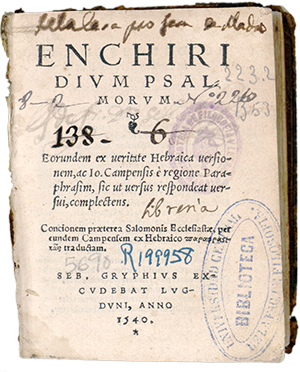 ENCHIRI
DIVM PSAL
MORVM.
Nº 220
223.2
8-2
1353
138 - 6
Eorundem ex veritate Hebraica versio-
nem, ac Io. Campensis è regione Para-
phrasim, sic ut versus respondeat ver-
sui, complectens.
Librería
Concionem præterea Salomonis Ecclesiastæ, per
eundem Campensem ex Hebraico
traductam.
R199958
5690
SEB. GRYPHIVS EX-
CVDEBAT LVG-
DVNI, ANNO
1540.
BIBLIOTECA